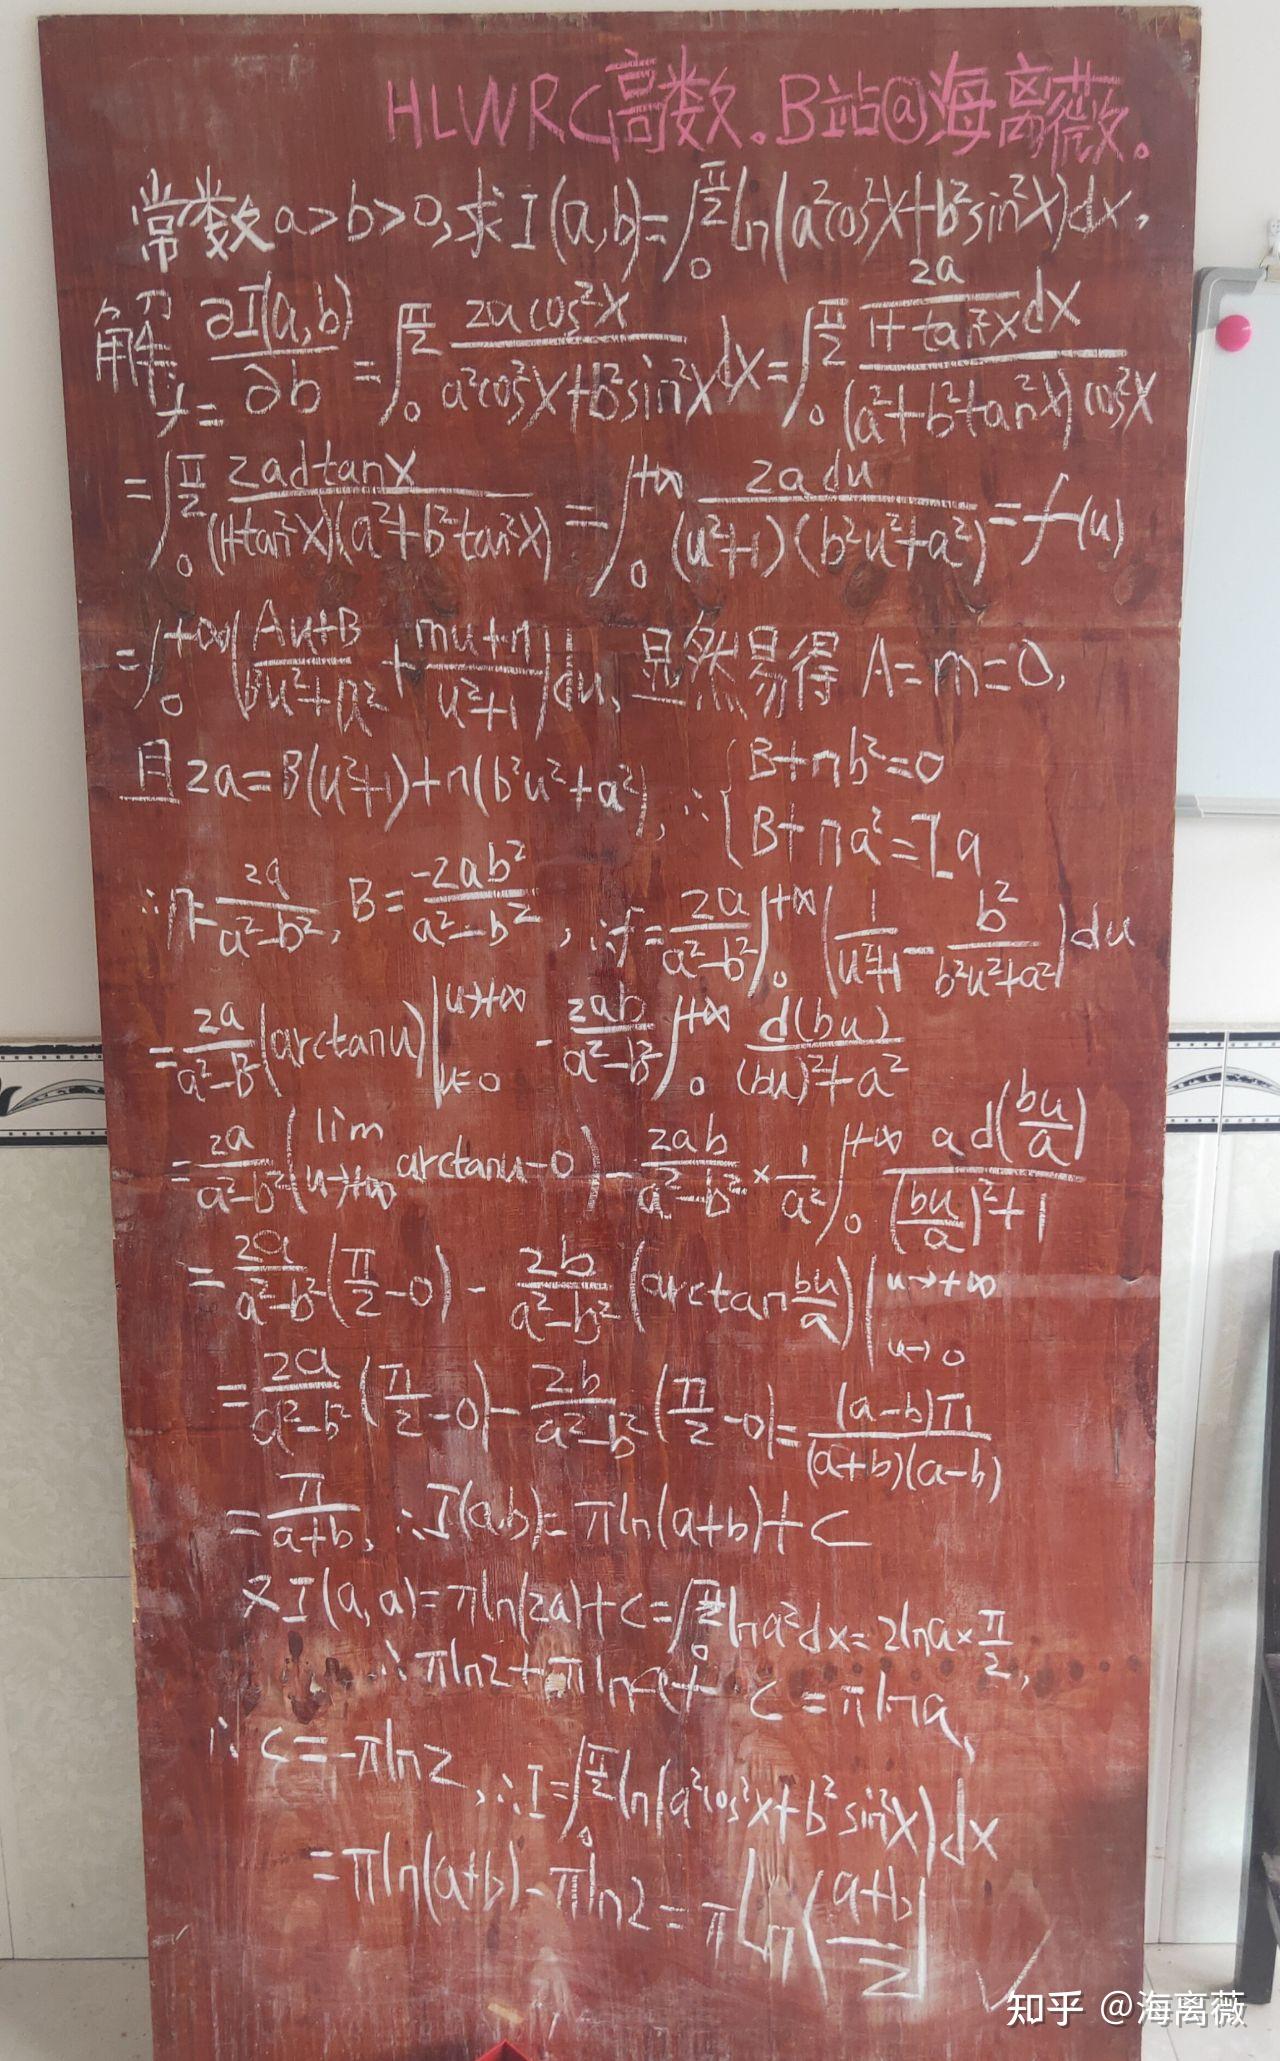 HLWRC高数。B站@海离薇。
常数a>b>0,求I(a,b)=∫₀^(π/2) ln(a²cos²x+b²sin²x)dx,
解:f=∂I(a,b)/∂b=∫₀^(π/2) (2acos²x)/(a²cos²x+b²sin²x)dx=∫₀^(π/2) (2a/(1+tan²x)dx)/((a²+b²tan²x)cos²x)
=∫₀^(π/2) (2adtanx)/((1+tan²x)(a²+b²tan²x))=∫₀^(+∞) (2adu)/((u²+1)(b²u²+a²))=f(u)
=∫₀^(+∞) ((Au+B)/(b²u²+a²)+(mu+n)/(u²+1))du,显然易得A=m=0,
且2a=B(u²+1)+n(b²u²+a²),∴{B+nb²=0
{B+na²=2a
∴n=2a/(a²-b²),B=(-2ab²)/(a²-b²),∴f=2a/(a²-b²)∫₀^(+∞) (1/(u²+1)-b²/(b²u²+a²))du
=2a/(a²-b²)(arctanu)|_(u=0)^(u→+∞) -2ab/(a²-b²)∫₀^(+∞) d(bu)/((bu)²+a²)
=2a/(a²-b²)(lim_(u→+∞) arctanu-0)-2ab/(a²-b²)×1/a²∫₀^(+∞) ad(bu/a)/((bu/a)²+1)
=2a/(a²-b²)(π/2-0)-2b/(a²-b²)(arctan bu/a)|_(u→0)^(u→+∞)
=2a/(a²-b²)(π/2-0)-2b/(a²-b²)(π/2-0)=((a-b)π)/((a+b)(a-b))
=π/(a+b),∴I(a,b)=πln(a+b)+C
又I(a,a)=πln(2a)+C=∫₀^(π/2) lna²dx=2lna×π/2,
∴πln2+πlna+C=πlna,
∴C=-πln2,∴I=∫₀^(π/2) ln(a²cos²x+b²sin²x)dx
=πln(a+b)-πln2=πln((a+b)/2) ✓
知乎 @海离薇